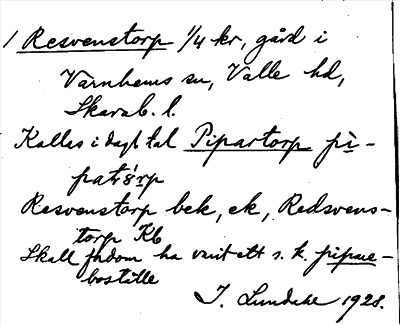 / Resvenstorp 1/4 kr, gård i
Varnhems sn, Valle hd,
Skarab. l.
Kalles i dagl. tal Pipartorp pì-
patǻrp
Resvenstorp bek, ek, Redsvens-
torp Kb
Skall fordom ha varit ett s. k. pipare-
boställe
I. Lundahl 1928.